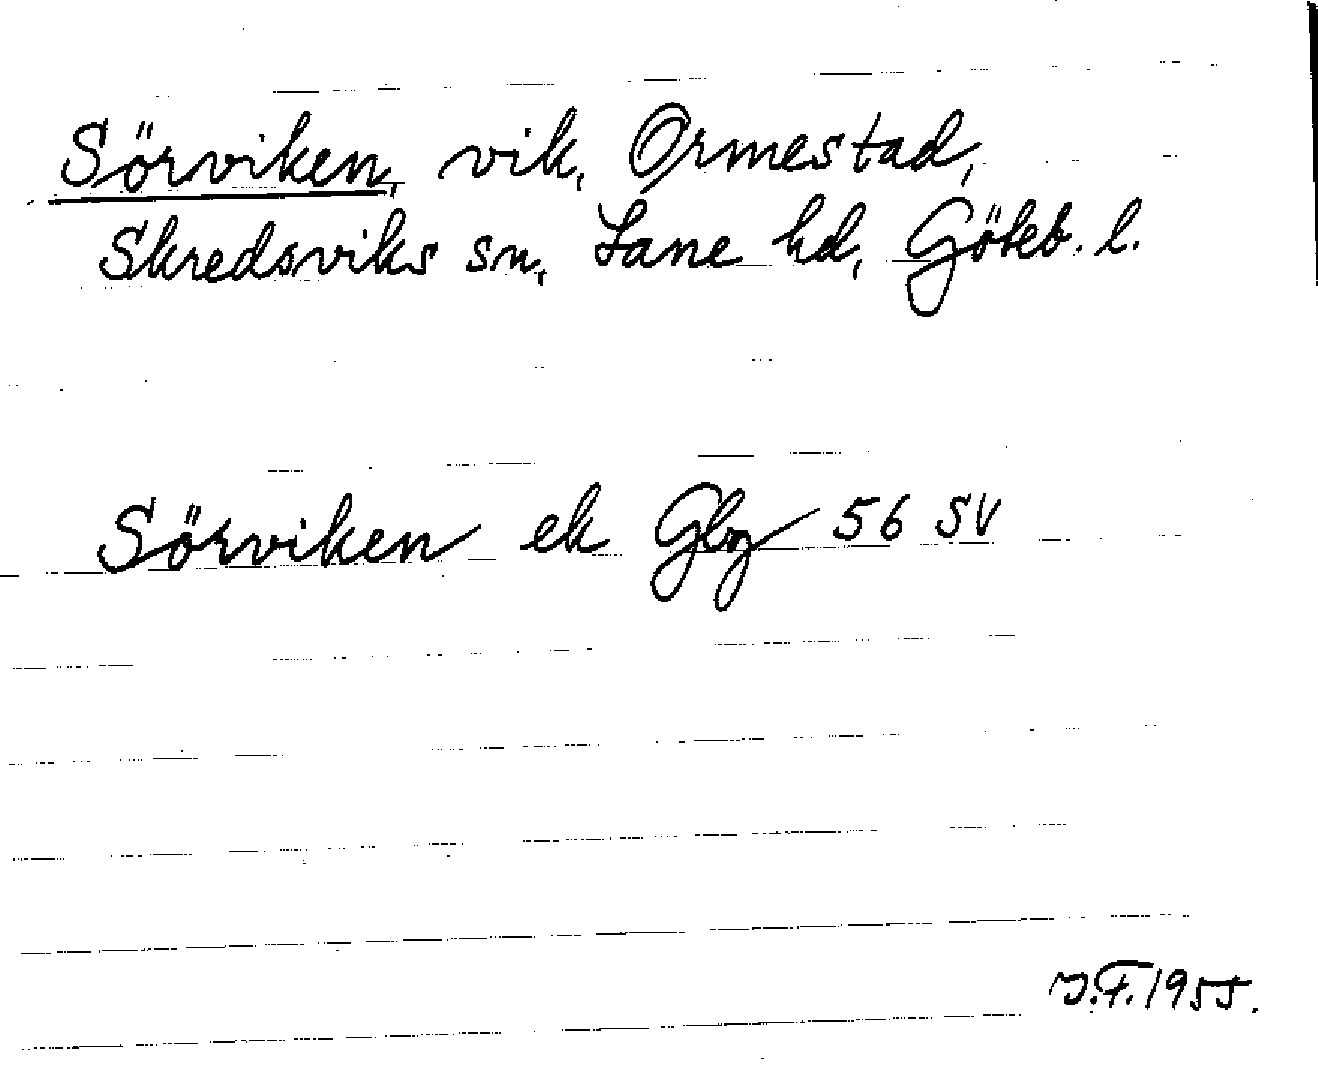 Sörviken, vik, Ormestad,
Skredsviks sn, Lane hd, Göteb. l.
Sörviken ek Gbg 56 SV
J.F. 1955.